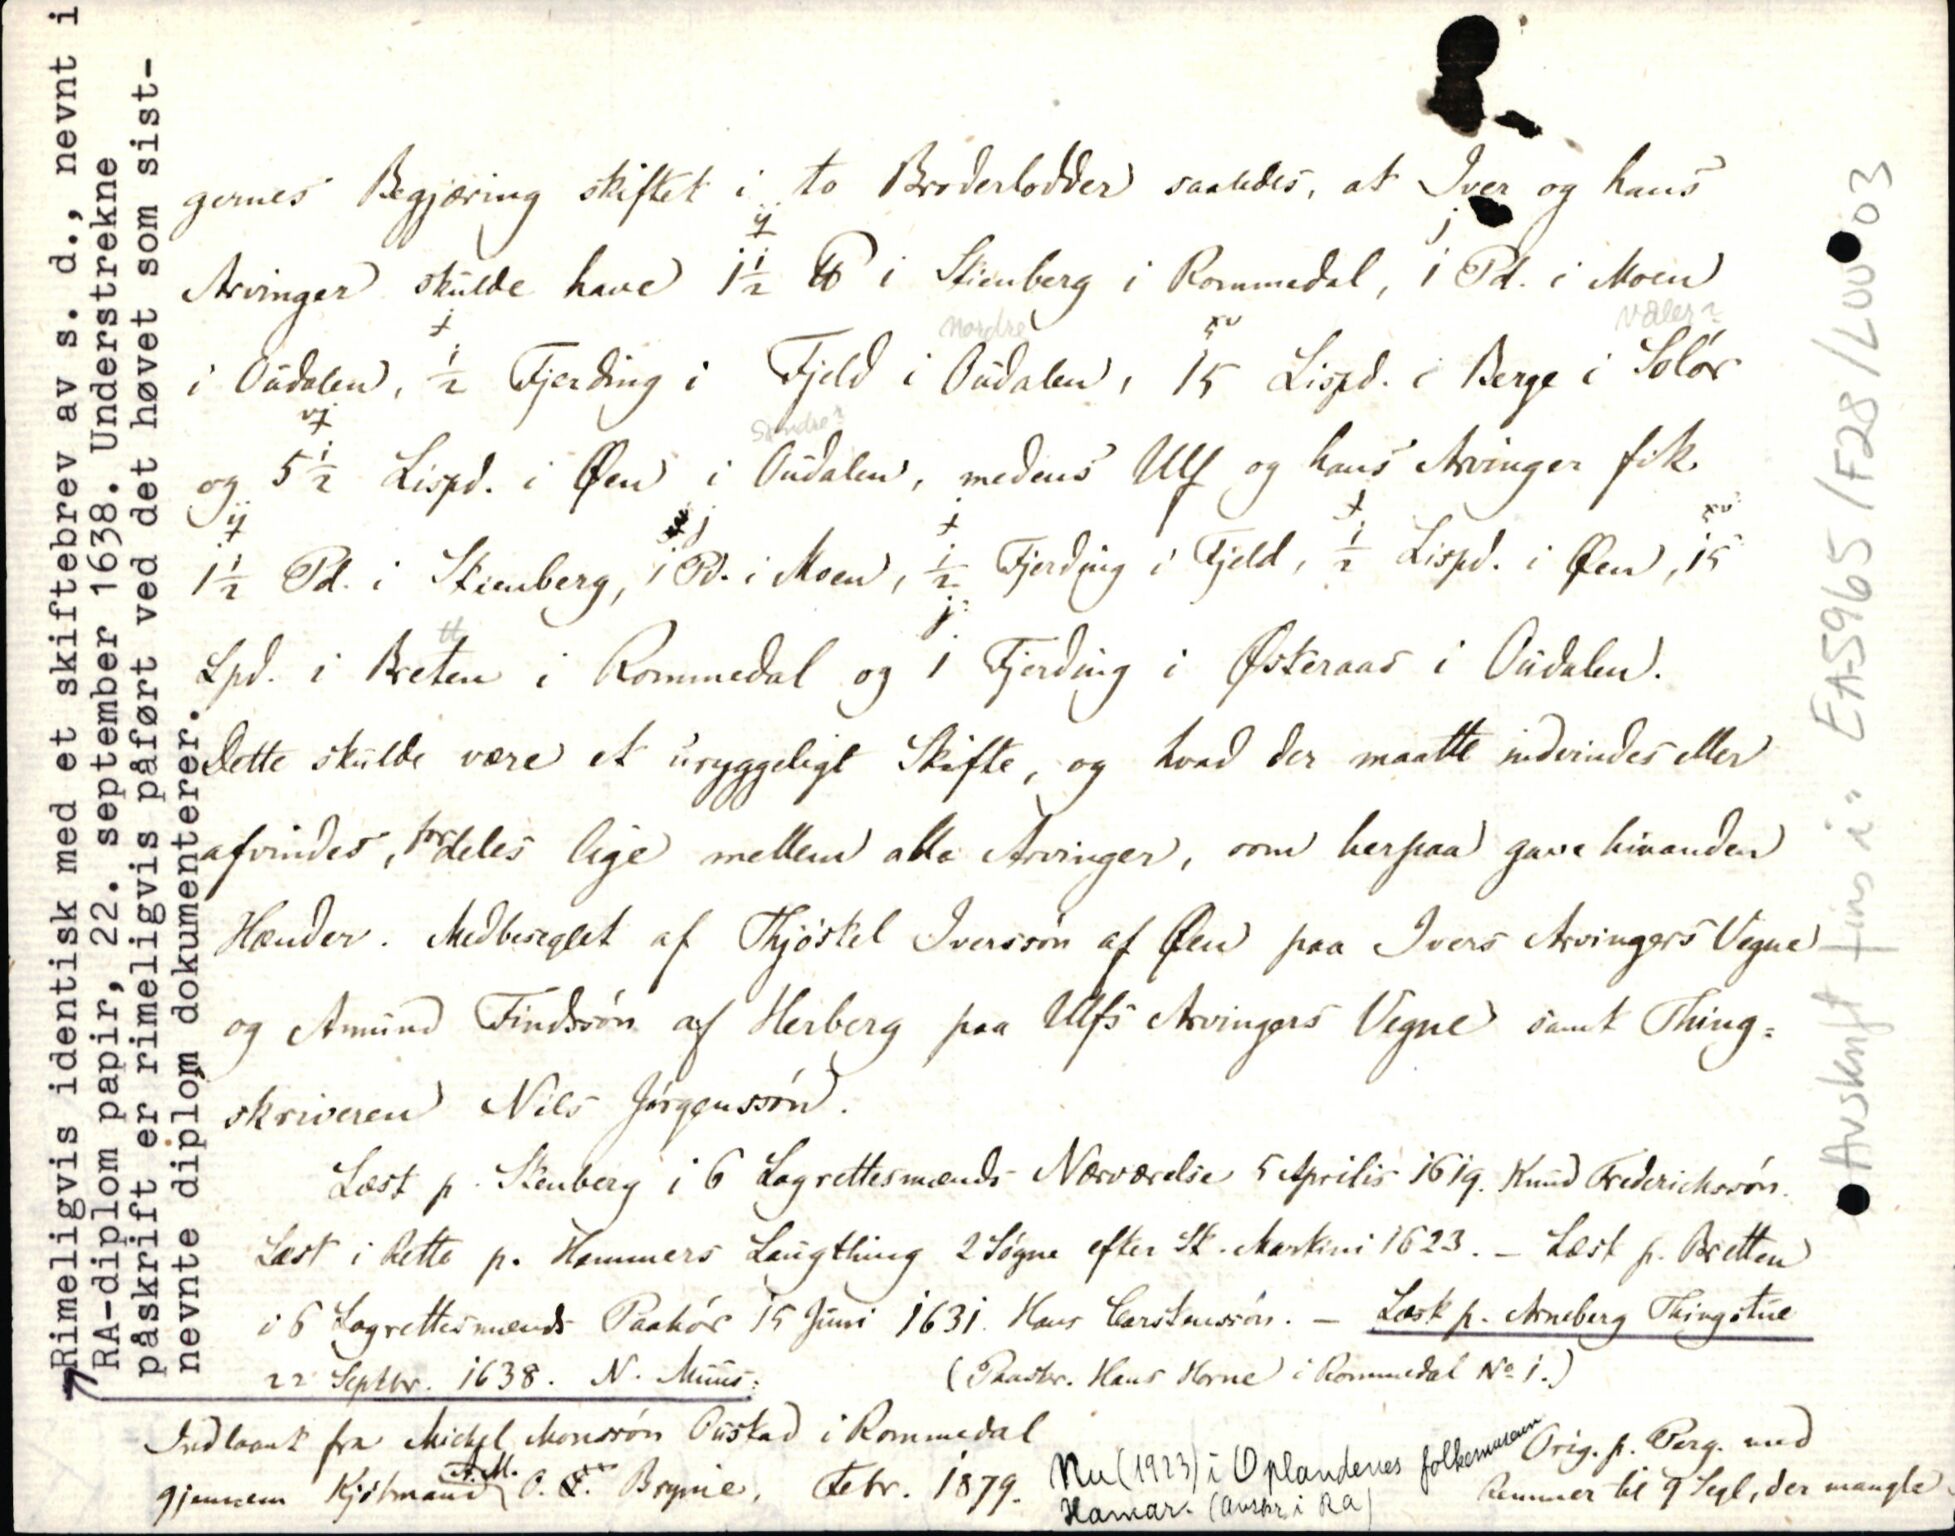 gernes Begjæring skiftet i to Broderlodder saaledes, at Iver og hans
ij j
Arvinger skulde have 1½ ℔ i Stienberg i Rommedal, 1 Pd. i Moen
Nordre xv Våler?
i Oudalen, ½ Fjerding i Fjeld i Oudalen, 15 Lispd. i Berge i Solør
vj Søndre?
og 5½ Lispd. i Øen i Oudalen, medens Ulf og hans Arvinger fik
ij j xv
1½ Pd. i Stienberg, 1 Pd. i Moen, ½ Fjerding i Fjeld, ½ Lispd. i Øen, 15
tt j
Lpd. i Breten i Rommedal og 1 Fjerding i Øskeraas i Oudalen.
Dette skulde være et uryggeligt Skifte, og hvad der maatte indvindes eller
afvindes, fordeles lige mellem alle Arvinger, som herpaa gave hinanden
Hænder. Medbeseglet af Thjøskel Iverssøn af Øen paa Ivers Arvingers Vegne
og Amund Findssøn af Herberg paa Ulfs Arvingers Vegne samt Thing=
skriveren Nils Jørgenssøn.
Læst p. Stenberg i 6 Lagrettesmænds Nærværelse 5 Aprilis 1619. Knud Frederichssøn.
Læst i Rette p. Hammers Laugthing 2 Søgne efter St. Martini 1623. – Læst p. Bretten
i 6 Lagrettesmænds Paahør 15 Juni 1631. Hans Carstenssøn. – Læst p. Arneberg Thingstue
22 Septbr. 1638. N. Muus. (Paaskr. Hans Horne i Rommedal No 1.)
Indlaant fra Michel Monssøn Oustad i Rommedal
gjennem Kjøbmand A.M. O. Brynie, Febr. 1879.
Nu (1923) i Oplandenes folkemuseum
Hamar. (avskr. i RA)
Orig. p. Perg. med
Remmer til 9 Segl, der mangle.
Rimeligvis identisk med et skiftebrev av s. d., nevnt i
RA-diplom papir, 22. september 1638. Understrekne
påskrift er rimeligvis påført ved det høvet som sist-
nevnte diplom dokumenterer.
Avskrift fins i: EA-5965/F28/L0003